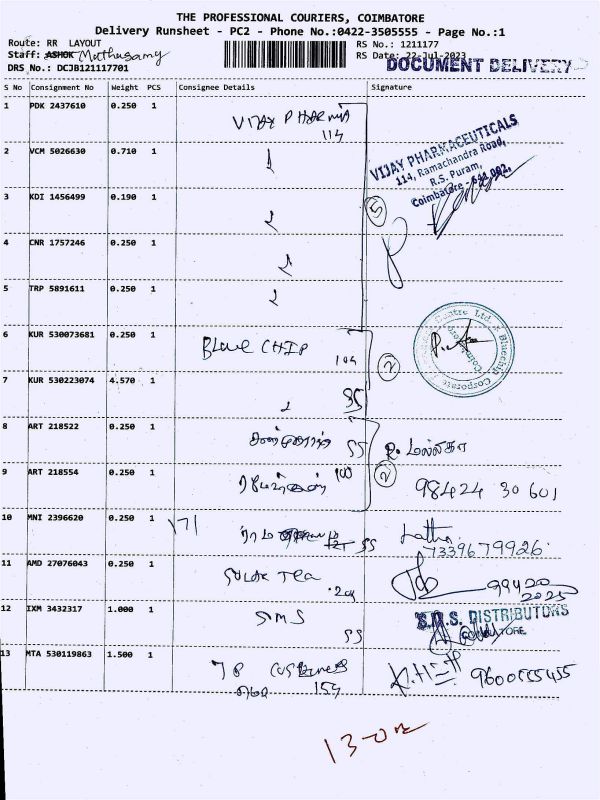 THE PROFESSIONAL COURIERS, COIMBATORE
Delivery Runsheet - PC2 - Phone No.:0422-3505555 - Page No.:1
Route: RR LAYOUT
RS No.: 1211177
Staff: ASHOK Muthusamy
RS Date: 22-Jul-2023
DOCUMENT DELIVERY
DRS No.: DCJB121117701
S No Consignment No Weight PCS Consignee Details Signature
1 PDK 2437610 0.250 1 VIJAY PHARMA
114
VIJAY PHARMACEUTICALS
114, Ramachandra Road,
R.S. Puram,
Coimbatore - 641 002.
2 VCM 5026630 0.710 1
3 KDI 1456499 0.190 1
5
4 CNR 1757246 0.250 1
5 TRP 5891611 0.250 1
6 KUR 530073681 0.250 1 BLUE CHIP
104
2
Bluechip Corporate Centre Ltd
Coimbatore
7 KUR 530223074 4.570 1
SS
8 ART 218522 0.250 1
SS
R. மல்லிகா
9 ART 218554 0.250 1
100
2
98424 30601
10 MNI 2396620 0.250 1
171
SS
Latha
7339679926
11 AMD 27076043 0.250 1
Tea
204
99420
2025
12 IXM 3432317 1.000 1 SMS
SS
S.M.S. DISTRIBUTORS
COIMBATORE
13 MTA 530119863 1.500 1
154
9600555455
13-